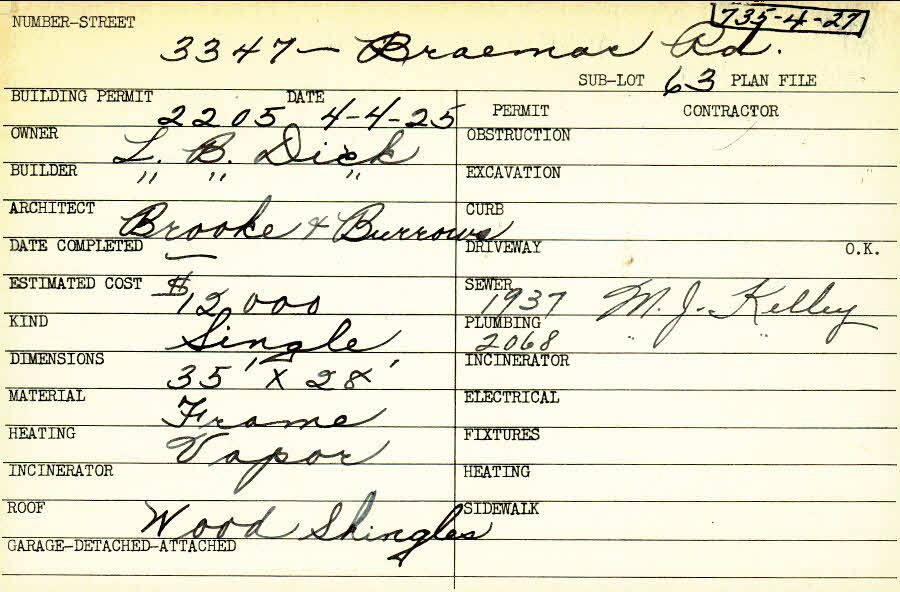 735-4-27
NUMBER-STREET
3347- Braemar Rd.
SUB-LOT 63 PLAN FILE
BUILDING PERMIT DATE
2205 4-4-25
PERMIT CONTRACTOR
OWNER L. B. Dick
OBSTRUCTION
BUILDER " " "
EXCAVATION
ARCHITECT Brooke & Burrows
CURB
DATE COMPLETED —
DRIVEWAY O.K.
ESTIMATED COST $12000
SEWER 1937 M. J. Kelley
KIND Single
PLUMBING 2068 " "
DIMENSIONS 35' x 28'
INCINERATOR
MATERIAL Frame
ELECTRICAL
HEATING Vapor
FIXTURES
INCINERATOR
HEATING
ROOF Wood Shingles
SIDEWALK
GARAGE-DETACHED-ATTACHED